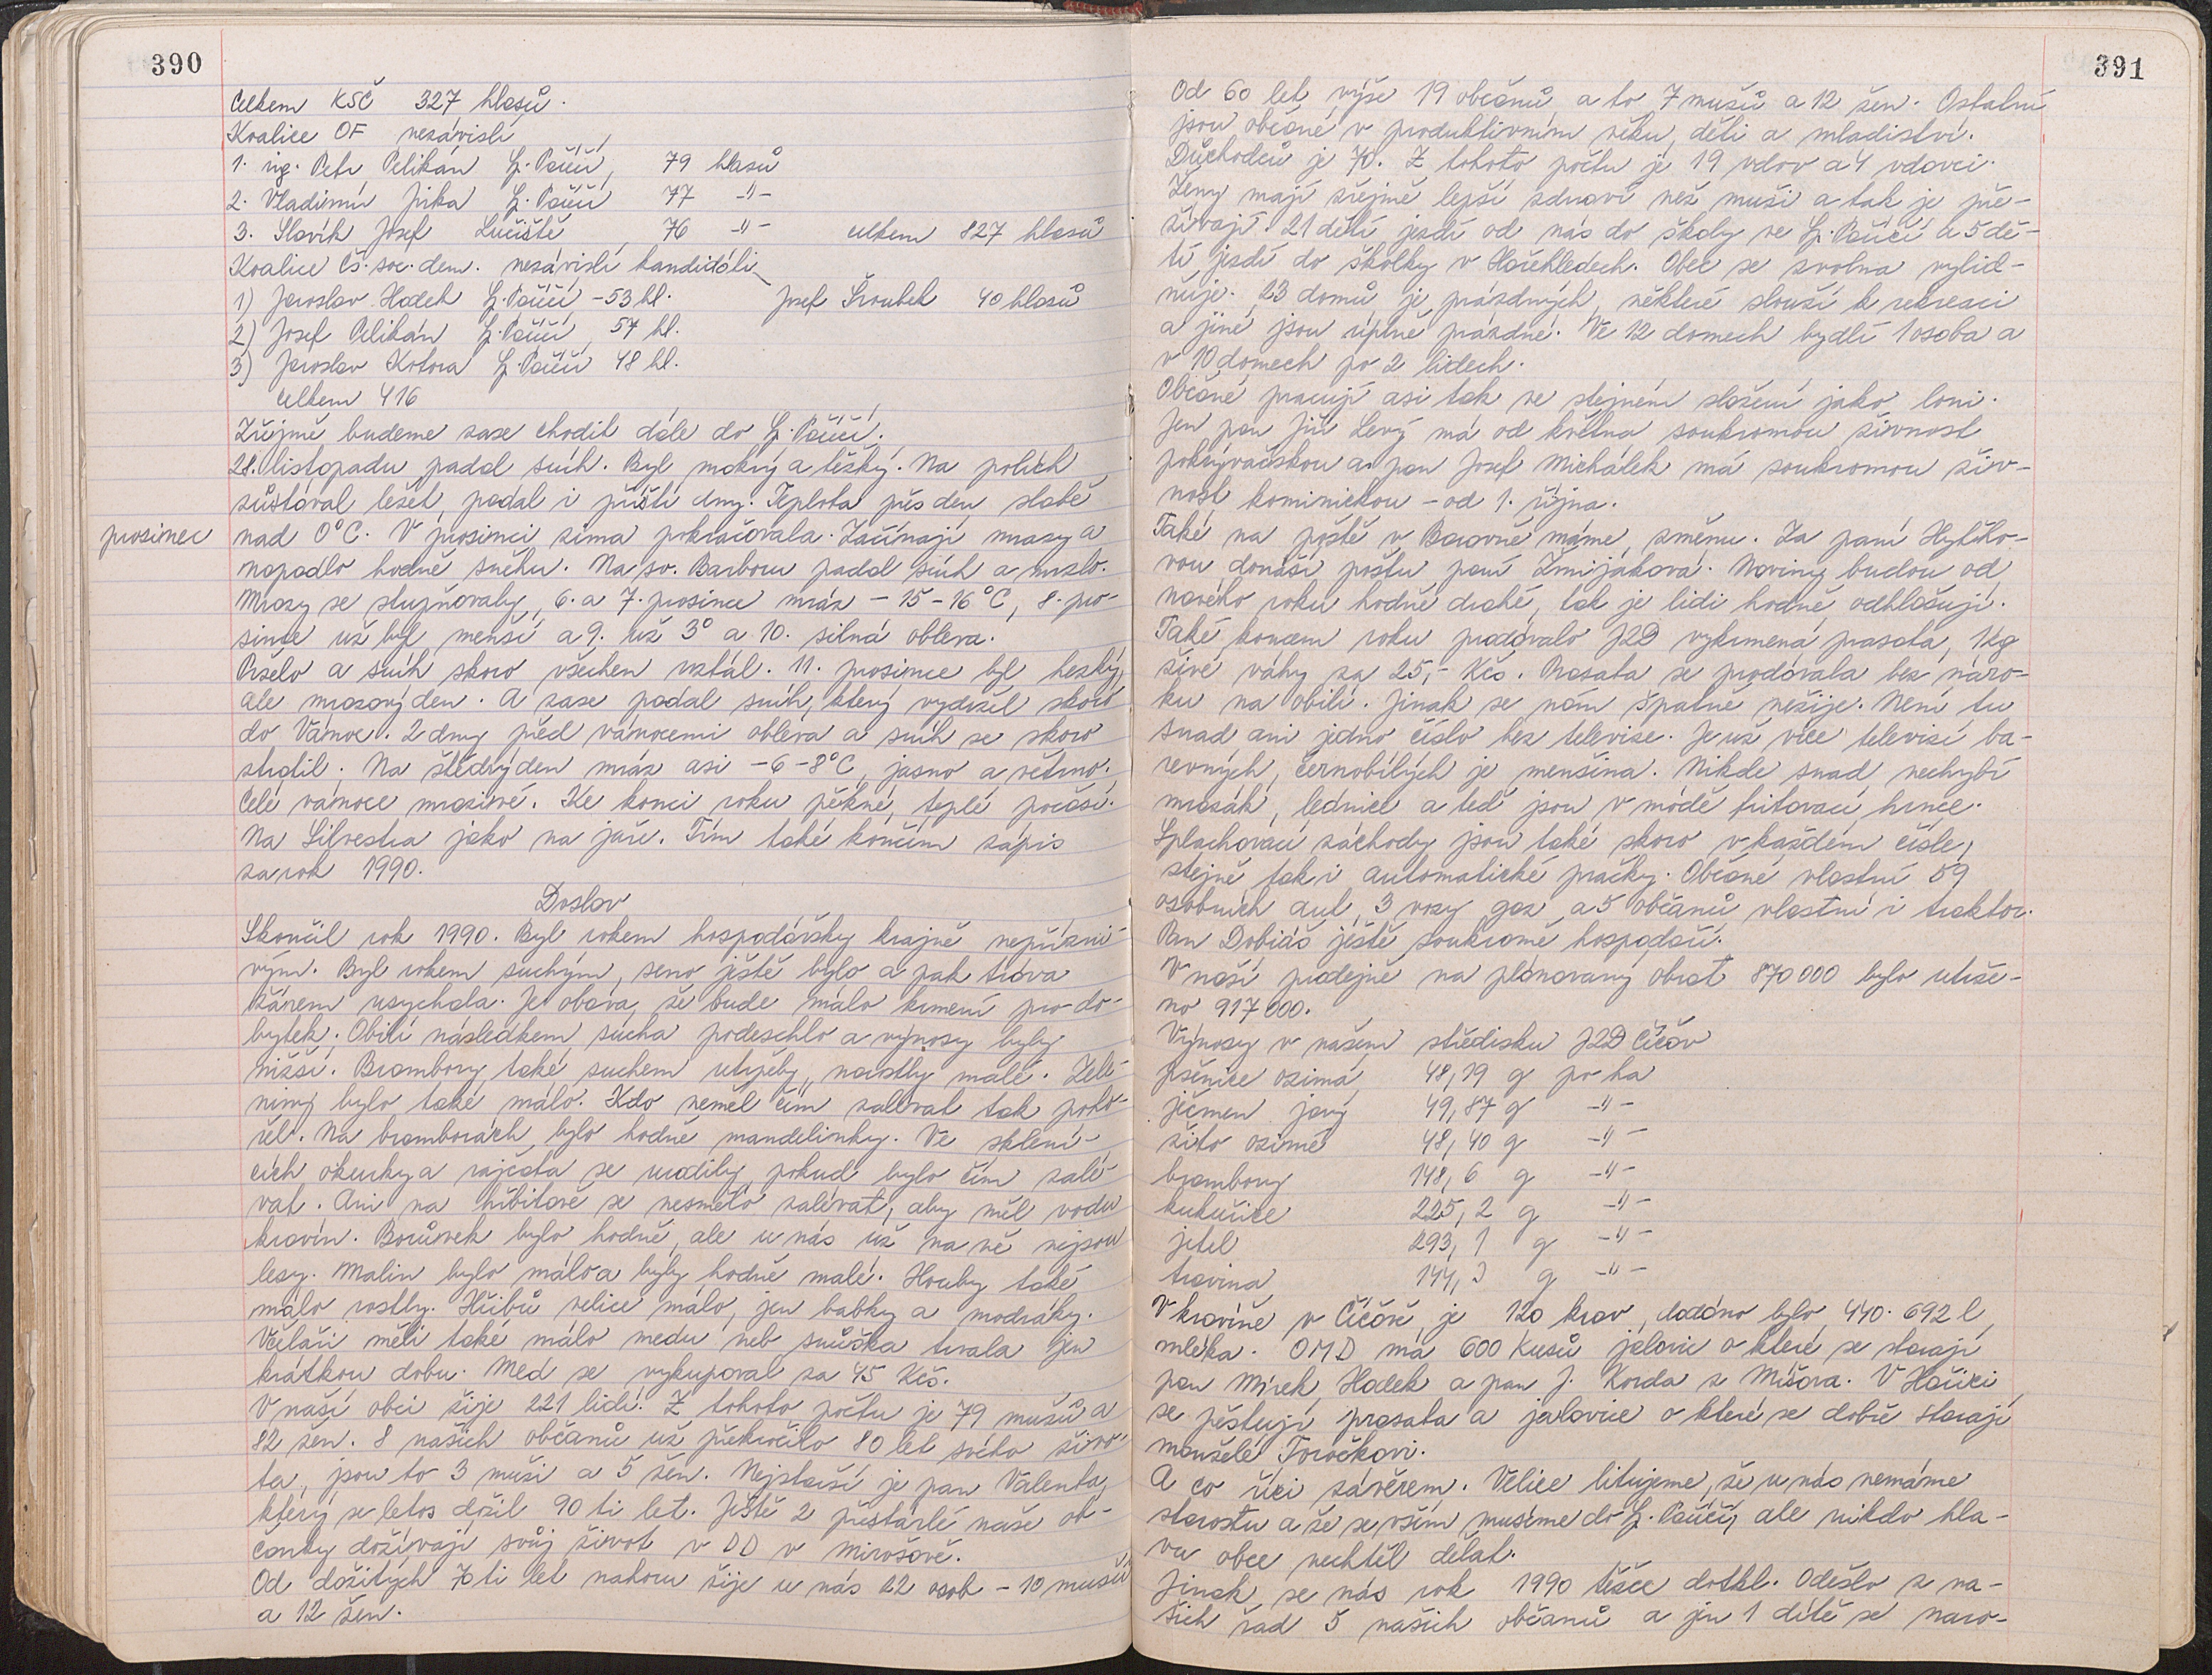 390
Celkem KSČ 327 hlasů.
Koalice OF nezávislí
1. ing. Petr Pelikán Sp. Poříčí, 79 hlasů
2. Vladimír Jirka Sp. Poříčí 77 -"-
3. Slavík Josef Lučiště 76 -"- celkem 827 hlasů
Koalice Čs. soc. dem. nezávislí kandidáti
1) Jaroslav Hodek Sp. Poříčí - 53 hl. Josef Šroubek 40 hlasů
2) Josef Pelikán Sp. Poříčí, 57 hl.
3) Jaroslav Kotora Sp. Poříčí 48 hl.
celkem 416
Zřejmě budeme zase chodit dále do Sp. Poříčí.
28. listopadu padal sníh. Byl mokrý a těžký. Na polích
zůstával ležet, padal i příští dny. Teplota přes den slabě
prosinec
nad 0°C. V prosinci zima pokračovala. Začínají mrazy a
napadlo hodně sněhu. Na sv. Barboru padal sníh a mrzlo.
Mrazy se stupňovaly, 6. a 7. prosince mráz - 15 - 16°C, 8. pro-
since už byl menší a 9. už 3° a 10. silná obleva.
Pršelo a sníh skoro všechen roztál. 11. prosince byl hezký,
ale mrazový den. A zase padal sníh, který vydržel skoro
do Vánoc. 2 dny před vánocemi obleva a sníh se skoro
ztratil. Na štědrý den mráz asi - 6 - 8°C, jasno a větrno.
Celé vánoce mrazivé. Ke konci roku pěkné, teplé počasí.
Na Silvestra jako na jaře. Tím také končím zápis
za rok 1990.
Doslov
Skončil rok 1990. Byl rokem hospodářsky krajně nepřízni-
vým. Byl rokem suchým, seno ještě bylo a pak tráva
žárem usychala. Je obava, že bude málo krmení pro do-
bytek. Obilí následkem sucha podeschlo a výnosy byly
nižší. Brambory také suchem utrpěly, narostly malé. Zele-
niny bylo také málo. Kdo neměl čím zalévat tak poho-
řel. Na bramborách bylo hodně mandelinky. Ve sklení-
cích okurky a rajčata se urodily, pokud bylo čím zalé-
vat. Ani na hřbitově se nesmělo zalévat, aby měl vodu
kravín. Borůvek bylo hodně, ale u nás už na ně nejsou
lesy. Malin bylo málo a byly hodně malé. Houby také
málo rostly. Hřibů velice málo, jen babky a modráky.
Včelaři měli také málo medu neb snůška trvala jen
krátkou dobu. Med se vykupoval za 45 Kčs.
V naší obci žije 221 lidí. Z tohoto počtu je 79 mužů a
82 žen. 8 našich občanů už překročilo 80 let svého živo-
ta, jsou to 3 muži a 5 žen. Nejstarší je pan Valenta,
který se letos dožil 90 ti let. Ještě 2 přestárlé naše ob-
čanky dožívají svůj život v DD v Mirošově.
Od dožitých 70 ti let nahoru žije u nás 22 osob - 10 mužů
a 12 žen.
391
Od 60 let výše 19 občanů a to 7 mužů a 12 žen. Ostatní
jsou občané v produktivním věku, děti a mladiství.
Důchodců je 70. Z tohoto počtu je 19 vdov a 4 vdovci.
Ženy mají zřejmě lepší zdraví než muži a tak je pře-
žívají. 21 dětí jezdí od nás do školy ve Sp. Poříčí a 5 dě-
tí jezdí do školky v Hořehledech. Obec se zvolna vylid-
ňuje. 23 domů je prázdných, některé slouží k rekreaci
a jiné jsou úplně prázdné. Ve 12 domech bydlí 1 osoba a
v 10 domech po 2 lidech.
Občané pracují asi tak ve stejném složení jako loni.
Jen pan Jiří Levý má od května soukromou živnost
pokrývačskou a pan Josef Michálek má soukromou živ-
nost kominickou - od 1. října.
Také na poště v Borovně máme změnu. Za paní Hytého-
vou donáší poštu paní Zmijáková. Noviny budou od
nového roku hodně drahé, tak je lidi hodně odhlašují.
Také koncem roku prodávalo JZD vykrmená prasata, 1kg
živé váhy za 25,- Kčs. Prasata se prodávala bez náro-
ku na obilí. Jinak se nám špatně nežije. Není tu
snad ani jedno číslo bez televize. Je už více televizí ba-
revných, černobílých je menšina. Nikde snad nechybí
mrazák, lednice a teď jsou v módě fritovací hrnce.
Splachovací záchody jsou také skoro v každém čísle,
stejně tak i automatické pračky. Občané vlastní 59
osobních aut, 3 vozy gaz a 5 občanů vlastní i traktor.
Pan Dobiáš ještě soukromě hospodaří.
V naší prodejně na plánovaný obrat 870 000 bylo utrže-
no 917 000.
Výnosy v našem středisku JZD Číčov
pšenice ozimá 48,19 q po ha
ječmen jarý 49,87 q -"-
žito ozimé 48,40 q -"-
brambory 148,6 q -"-
kukuřice 225,2 q -"-
jetel 293,1 q -"-
travina q -"-
V kravíně v Číčově je 120 krav, dodáno bylo 440.692 l
mléka. OMD má 600 kusů jalovic o které se starají
pan Mírek Hodek a pan J. Korda z Mišova. V Hořici
se pěstují prasata a jalovice o které se dobře starají
manželé Toročkovi.
A co říci závěrem. Velice litujeme, že u nás nemáme
starostu a že se vším musíme do Sp. Poříčí, ale nikdo hla-
vu obce nechtěl dělat.
Jinak se nás rok 1990 těžce dotkl. Odešlo z na-
šich řad 5 našich občanů a jen 1 dítě se naro-